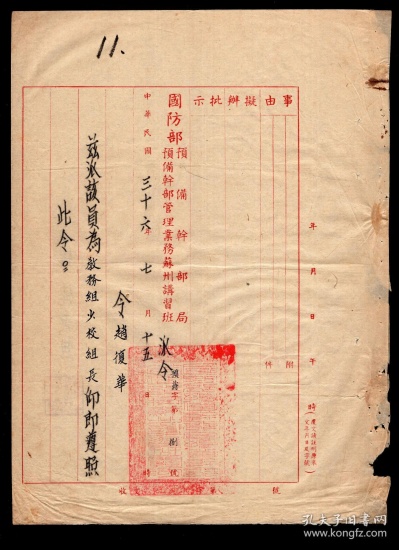 11.
事由擬辦批示
年 月 日 午 時
附 件
國防部預備幹部局
預備幹部管理業務蘇州講習班
派令
中華民國三十六年七月十五日 時
預蘇字第 捌 號
令 趙復華
茲派該員為教務組少校組長仰即遵照
此令。
收 第 號
孔夫子旧书网